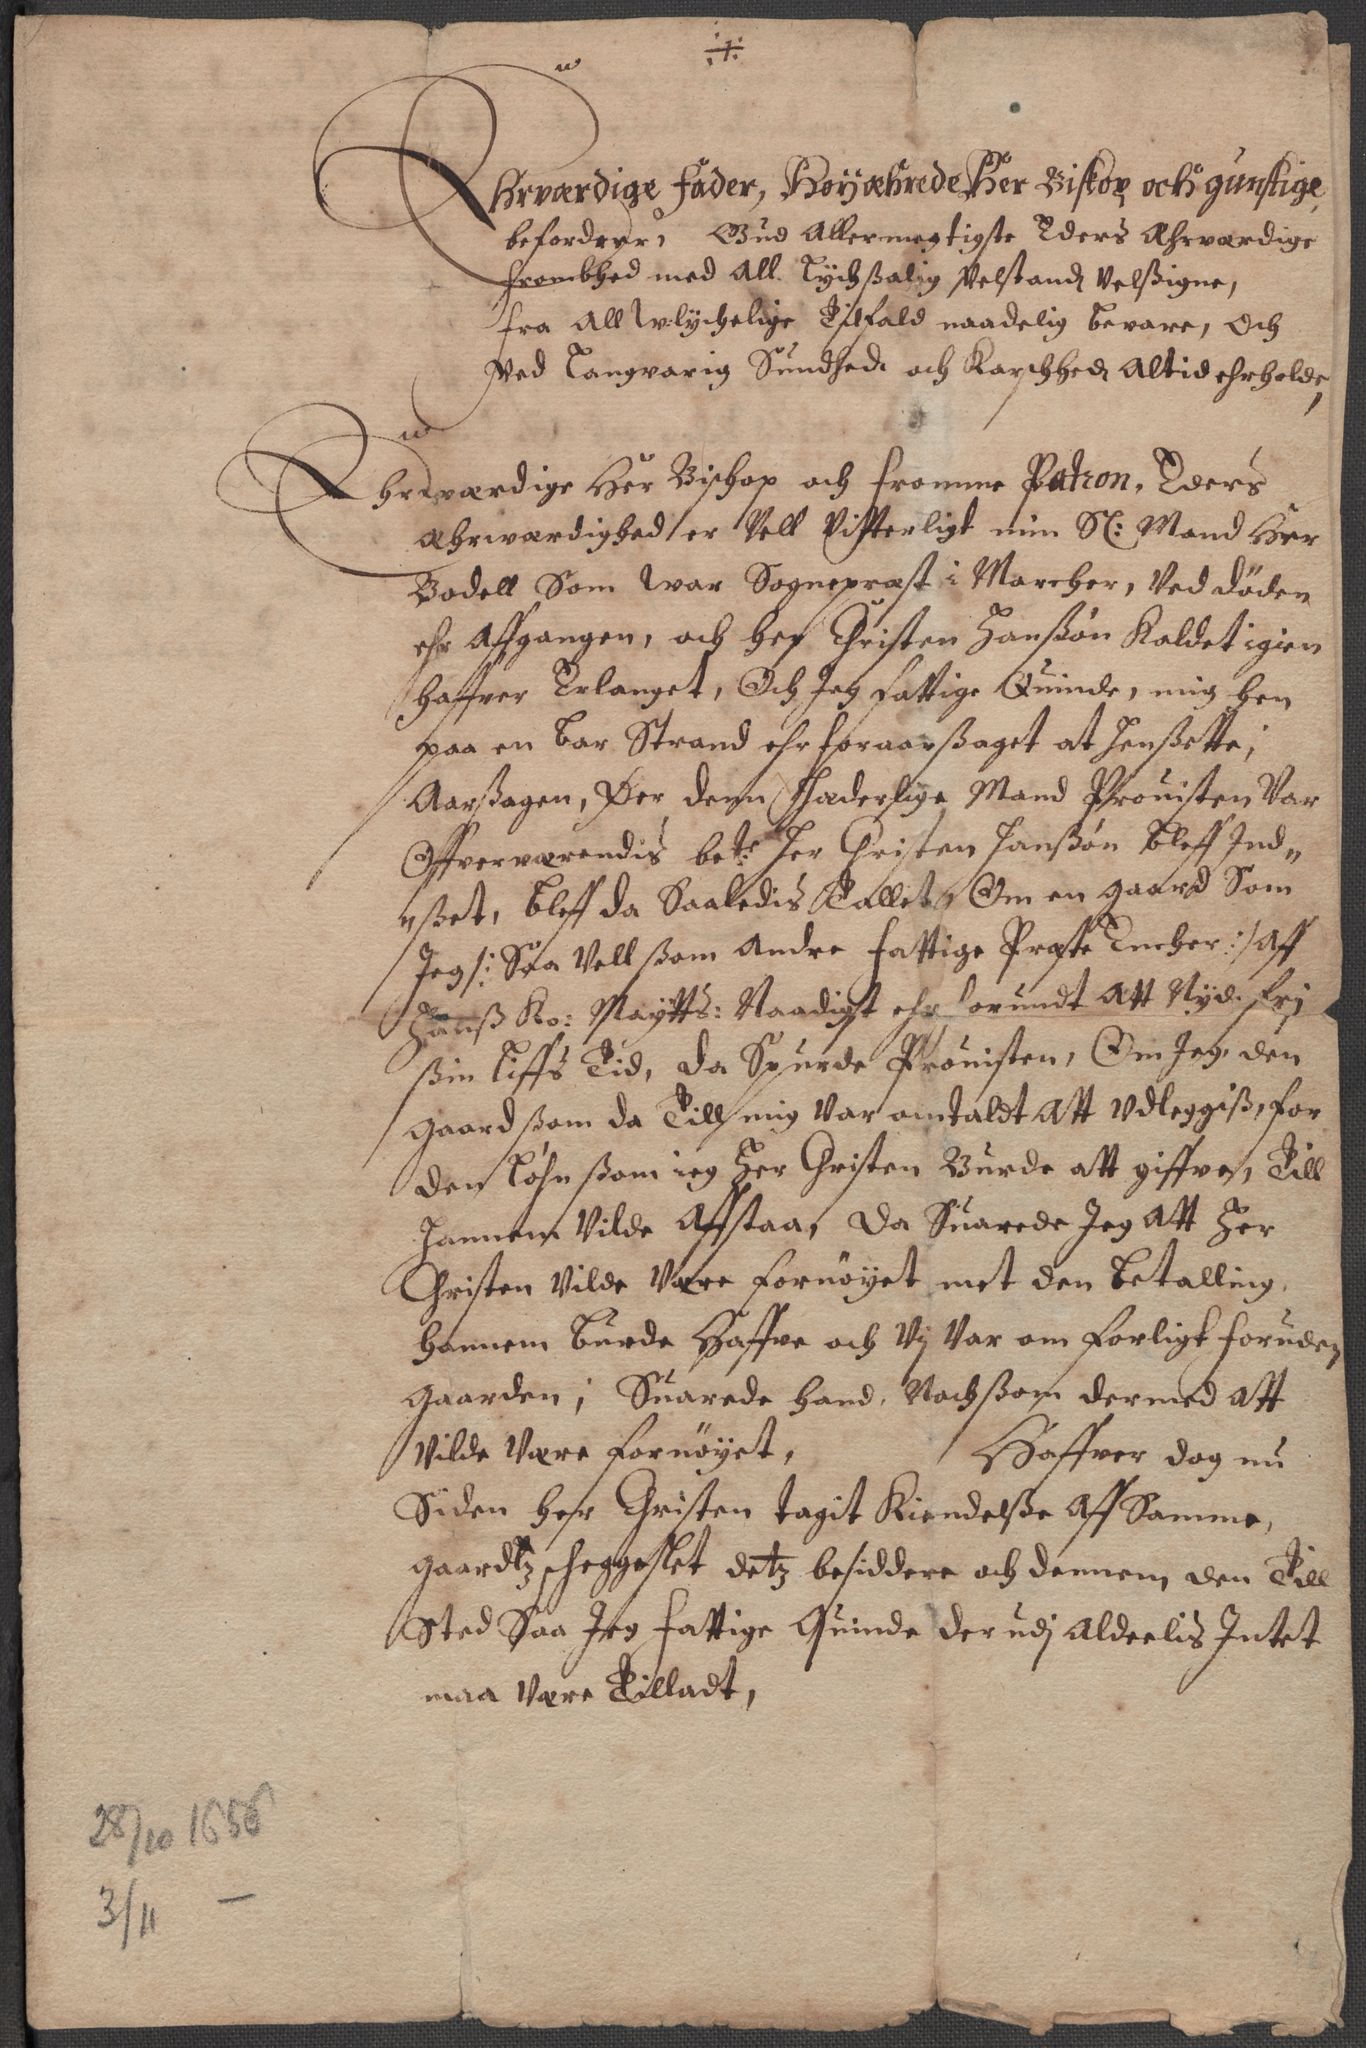 Ehrværdige Fader, Høyæhrede Her Biskop och gunstige
befordrer, Gud Allermegtigste Eders Ahrværdige
Frombhed med All Lychsalig Velstand Velßigne,
fra All Wlychelige Tilfald naadelig bevare, Och
Ved Langvarig Sundhed och Karschhed Altid ehrholde,
Ehrværdige Her Bischop och fromme Patron, Eders
Ahrværdighed er Vell Vitterligt min Sl: Mand Her
Bodell Som War Sogneprest i Marcher, Ved döden
ehr Affgangen, och her Christen Hanßön Kaldet igien
haffver Erlanget, Och Jeg fattige Quinde, mig hen
paa en bar Strand ehr foraarßaget at henßette;
Aarßagen, Der denn Hæderlige Mand Provisten Var
Offververendis bete: Her Christen Hanßön bleff Ind„
„ßet, bleff da Saaledis Tallet, Om en gaard Som
Jeg /: Saa Vell ßom Andre fattige Preste Encher :/ Aff
Hanß Ko: Maÿtts: Naadigst ehr forundt Att Nyde frj
ßin Liffs Tid, da Spurde Provisten, Om Jeg den
gaard ßom da Till mig Var omtaldt Att Udleggiß, for
den Löhn ßom ieg Her Christen Burde att giffve, Till
Hannem Vilde Affstaa, da Suarede Jeg Att Her
Christen Vilde Være fornöyet met den betalling
hannem burde Haffve och Vj Var om forligt foruden
gaarden; Suarede hand, Nochßom dermed Att
Vilde Være fornöyet, Haffver dog nu
Siden her Christen tagit Kiendelße Aff Samme
gaardtz detz besiddere och dennem den Till
Sted Saa Jeg fattige Quinde der udj Aldeelis Intet
maa Være Tilladt,
28/10 1656
3/11 —